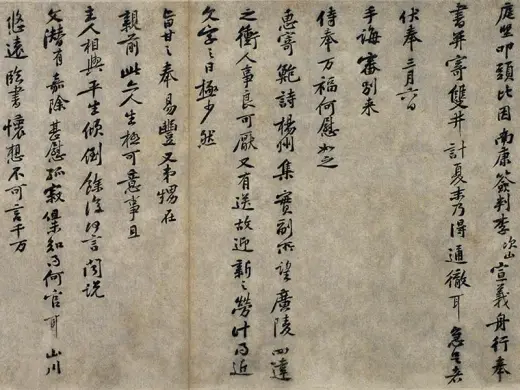 庭堅叩頭比因南康簽判李次山宣義舟行奉
書并寄雙井計夏末乃得通徹耳急足者
伏奉三月六日
手誨審別來
侍奉万福何慰如之
惠寄鮑詩楊州集實副所望廣陵四達
之衝人事良可厭又有送故迎新之勞計得近
文字之日極少然
旨甘之奉易豐又弟甥在
親前此亦人生極可意事且
主人相與平生傾倒餘復何言聞說
文潛有嘉除甚慰孤寂但知得何官耳山川
悠遠臨書懷想不可言千万